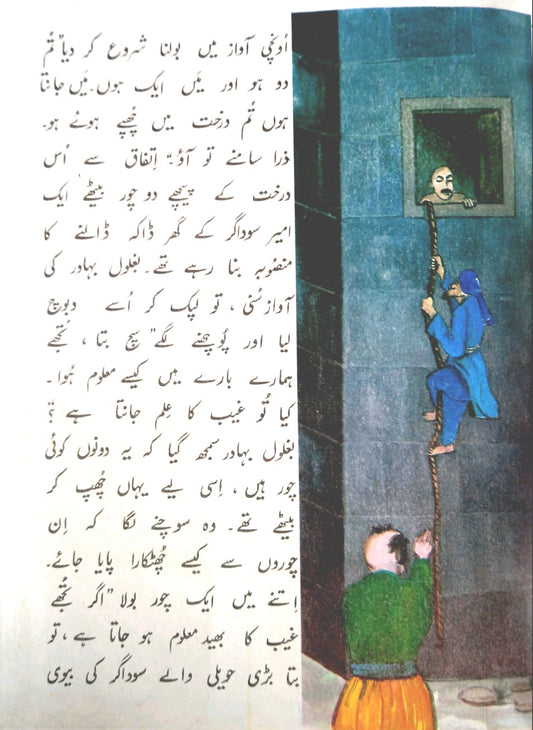 اُونچی آواز میں بولنا شروع کر دیا "تُم
دو ہو اور میں ایک ہوں۔ میں جانتا
ہوں تُم درخت میں چُھپے ہوئے ہو۔
ذرا سامنے تو آؤ"۔ اِتفاق سے اُس
درخت کے پیچھے دو چور بیٹھے ایک
امیر سوداگر کے گھر ڈاکہ ڈالنے کا
منصُوبہ بنا رہے تھے۔ بغلول بہادر کی
آواز سُنی، تو لپک کر اُسے دبوچ
لیا اور پُوچھنے لگے "سچ بتا، تُجھے
ہمارے بارے میں کیسے معلوم ہُوا۔
کیا تُو غیب کا عِلم جانتا ہے؟"
بغلول بہادر سمجھ گیا کہ یہ دونوں کوئی
چور ہیں، اِسی لیے یہاں چُھپ کر
بیٹھے تھے۔ وہ سوچنے لگا کہ اِن
چوروں سے کیسے چُھٹکارا پایا جائے۔
اِتنے میں ایک چور بولا "اگر تُجھے
غیب کا بھید معلوم ہو جاتا ہے، تو
بتا بڑی حویلی والے سوداگر کی بیوی